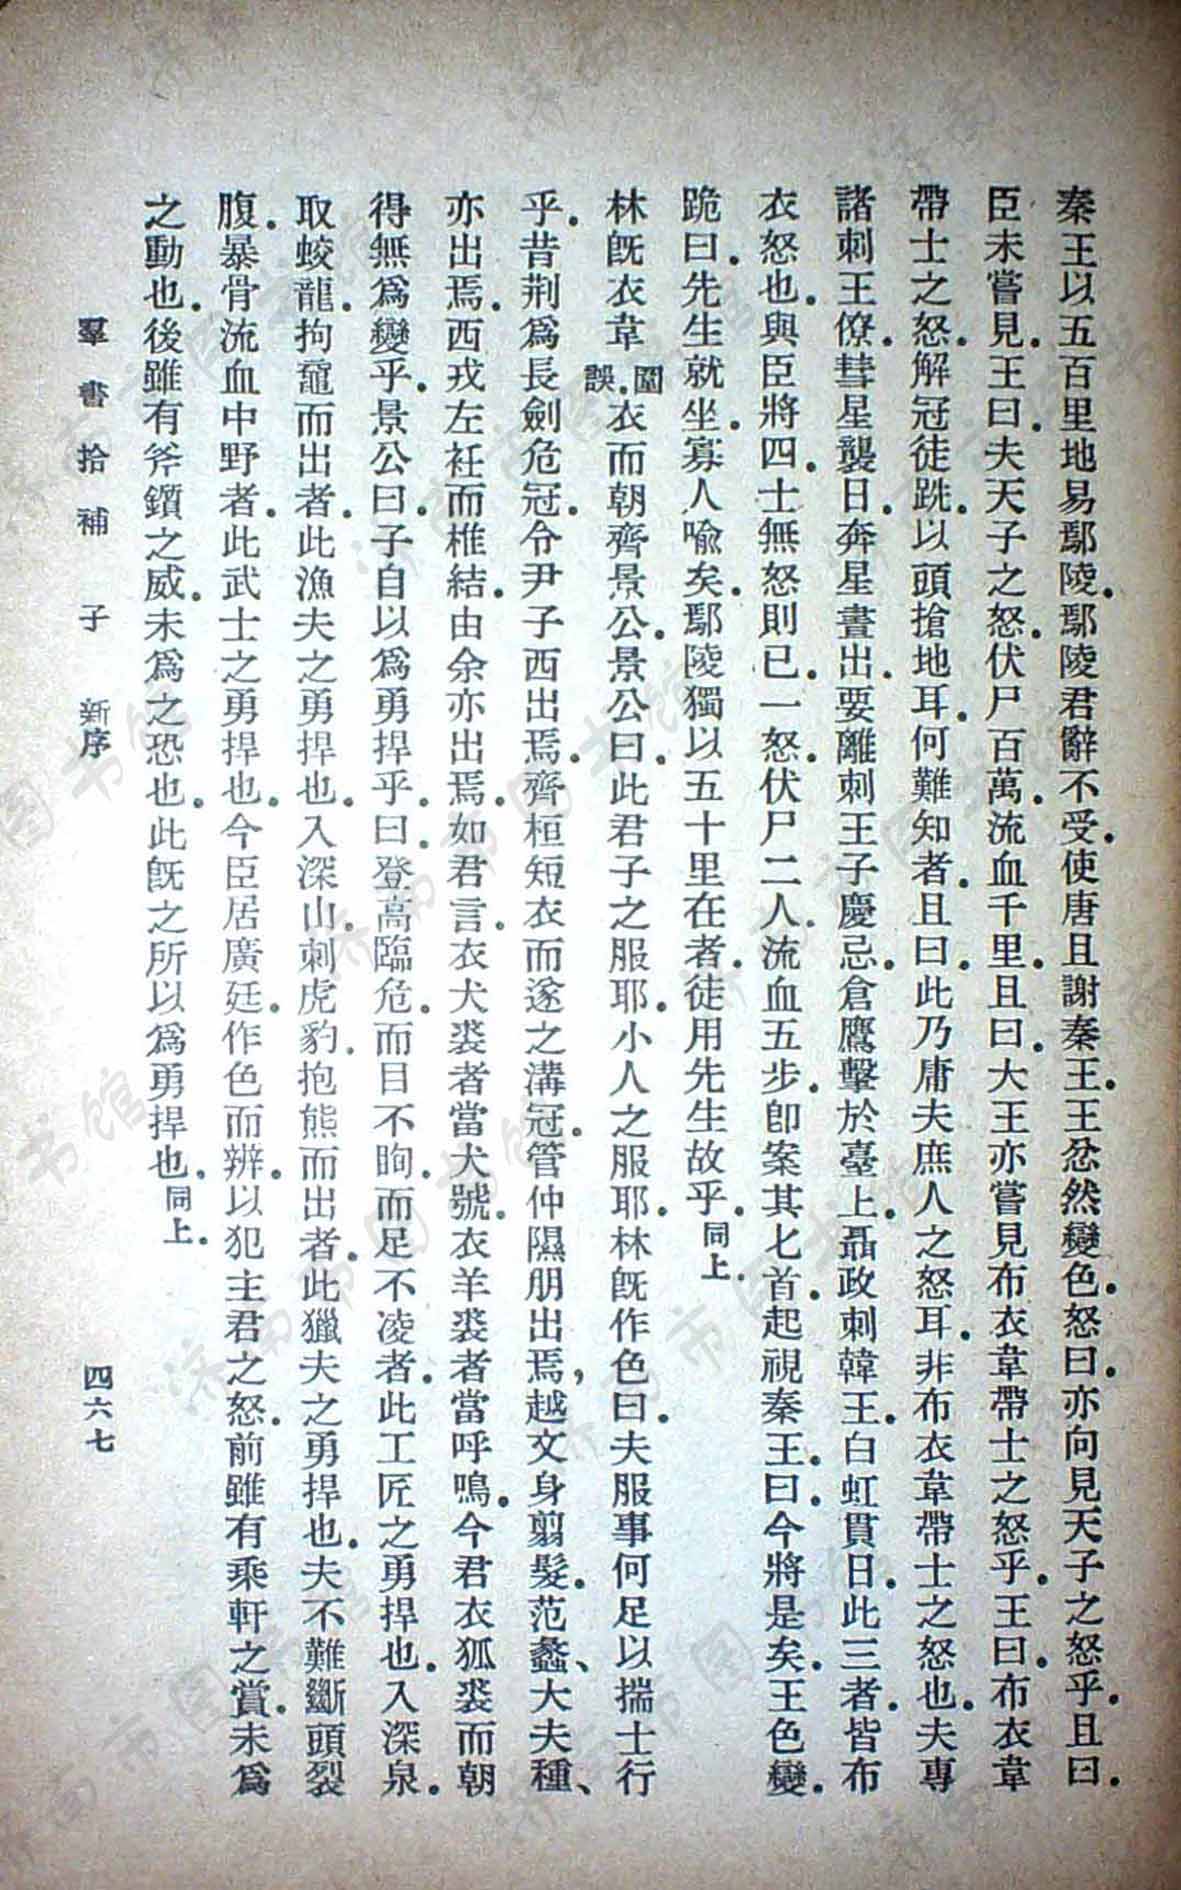 秦王以五百里地易鄢陵。鄢陵君辭不受。使唐且謝秦王。王忿然變色。怒曰。亦向見天子之怒乎。且曰。
臣未嘗見。王曰。夫天子之怒。伏尸百萬。流血千里。且曰。大王亦嘗見布衣韋帶士之怒乎。王曰。布衣韋
帶士之怒。解冠徒跣。以頭搶地耳。何難知者。且曰。此乃庸夫庶人之怒耳。非布衣韋帶士之怒也。夫專
諸刺王僚。彗星襲日。奔星晝出。要離刺王子慶忌。倉鷹擊於臺上。聶政刺韓王。白虹貫日。此三者。皆布
衣怒也。與臣將四。士無怒則已。一怒。伏尸二人。流血五步。卽案其匕首。起視秦王。曰。今將是矣。王色變。
跪曰。先生就坐。寡人喩矣。鄢陵獨以五十里在者。徒用先生故乎。同上。
林旣衣韋圍誤。衣而朝齊景公。景公曰。此君子之服耶。小人之服耶。林旣作色曰。夫服事何足以揣士行
乎。昔荆爲長劍危冠。令尹子西出焉。齊桓短衣而遂之溝冠。管仲隰朋出焉，越文身翦髮。范蠡、大夫種、
亦出焉。西戎左衽而椎結。由余亦出焉。如君言。衣犬裘者當犬號。衣羊裘者當呼鳴。今君衣狐裘而朝
得無爲變乎。景公曰。子自以爲勇捍乎。曰。登高臨危。而目不眴。而足不凌者。此工匠之勇捍也。入深泉。
取蛟龍。拘黿而出者。此漁夫之勇捍也。入深山。刺虎豹。抱熊而出者。此獵夫之勇捍也。夫不難斷頭裂
腹。暴骨流血中野者。此武士之勇捍也。今臣居廣廷。作色而辨。以犯主君之怒。前雖有乘軒之賞。未爲
之動也。後雖有斧鑕之威。未爲之恐也。此旣之所以爲勇捍也。同上。
羣書拾補 子 新序
四六七